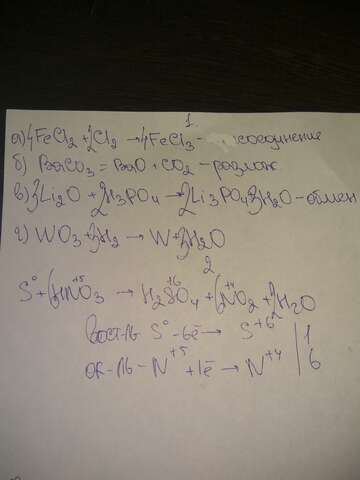 1.
а) 4FeCl2 + 2Cl2 → 4FeCl3 - соединение
б) BaCO3 = BaO + CO2 - разлож
в) 3Li2O + 2H3PO4 → 2Li3PO4 3H2O - обмен
г) WO3 + 3H2 → W + 3H2O
2
S° + 6HN⁺⁵O3 → H2S⁺⁶O4 + 6N⁺⁴O2 + 2H2O
Вост-ль S° - 6ē → S⁺⁶ | 1
Ок-ль - N⁺⁵ + 1ē → N⁺⁴ | 6